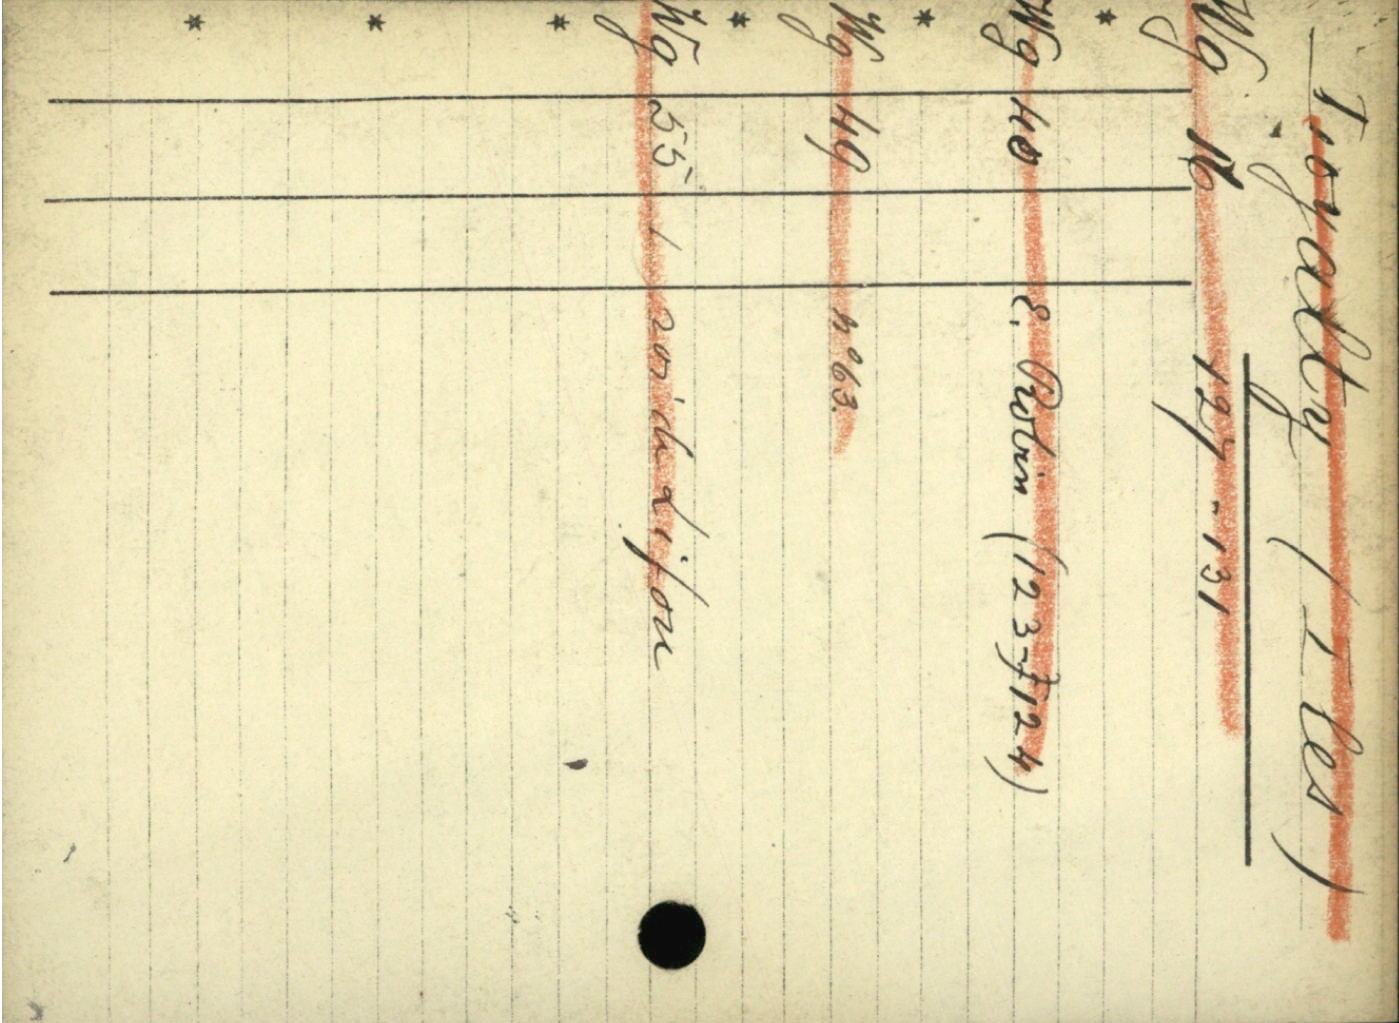 Loyalty (Iles)
Wg 16 127-131
*
Wg 40 E. Robin (123-124)
*
Wg 49 n° 63.
*
Wg 55 1 roi de Lifou
*
*
*